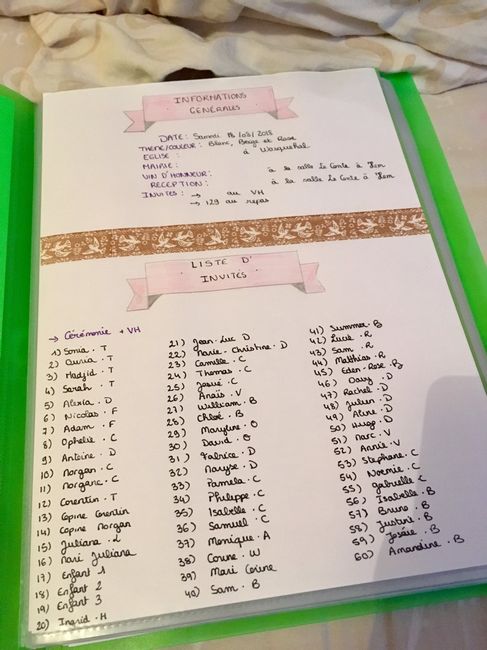 INFORMATIONS
GÉNÉRALES
DATE : Samedi 18/08/2018
THEME/COULEUR : Blanc, Beige et Rose
EGLISE : à Wasquehal
MAIRIE :
VIN D'HONNEUR : à la salle Le Conte à Hem
RECEPTION : à la salle Le Conte à Hem
INVITES : → au VH
→ 129 au repas
LISTE D'
INVITÉS
→ Cérémonie + VH
1) Sonia . T
2) Ouria . T
3) Hadjid . T
4) Sarah . T
5) Alexia . D
6) Nicolas . F
7) Adam . F
8) Ophélie . C
9) Antoine . D
10) Morgan . C
11) Morgane . C
12) Corentin . T
13) Copine Corentin
14) Copine Morgan
15) Juliana . L
16) Mari Juliana
17) Enfant 1
18) Enfant 2
19) Enfant 3
20) Ingrid . H
21) Jean-Luc D
22) Marie-Christine . D
23) Camille . C
24) Thomas . C
25) Josué . C
26) Anaïs . V
27) William . B
28) Chloé . B
29) Maryline . O
30) David . O
31) Fabrice . D
32) Maryse . D
33) Pamela . C
34) Philippe . C
35) Isabelle . C
36) Samuel . C
37) Monique . A
38) Corine . W
39) Mari Corine
40) Sam . B
41) Summer . B
42) Lucie . R
43) Sam . R
44) Matthias . R
45) Eden-Rose . B
46) Davy . D
47) Rachel . D
48) Julien . D
49) Aline . D
50) Hugo . D
51) Marc . V
52) Annie . V
53) Stephane . C
54) Noémie . C
55) Gabrielle C
56) Isabelle . B
57) Bruno . B
58) Justine . B
59) Josée . B
60) Amandine . B